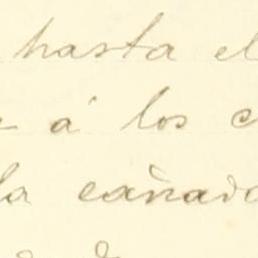 hasta el
á los
la cañad